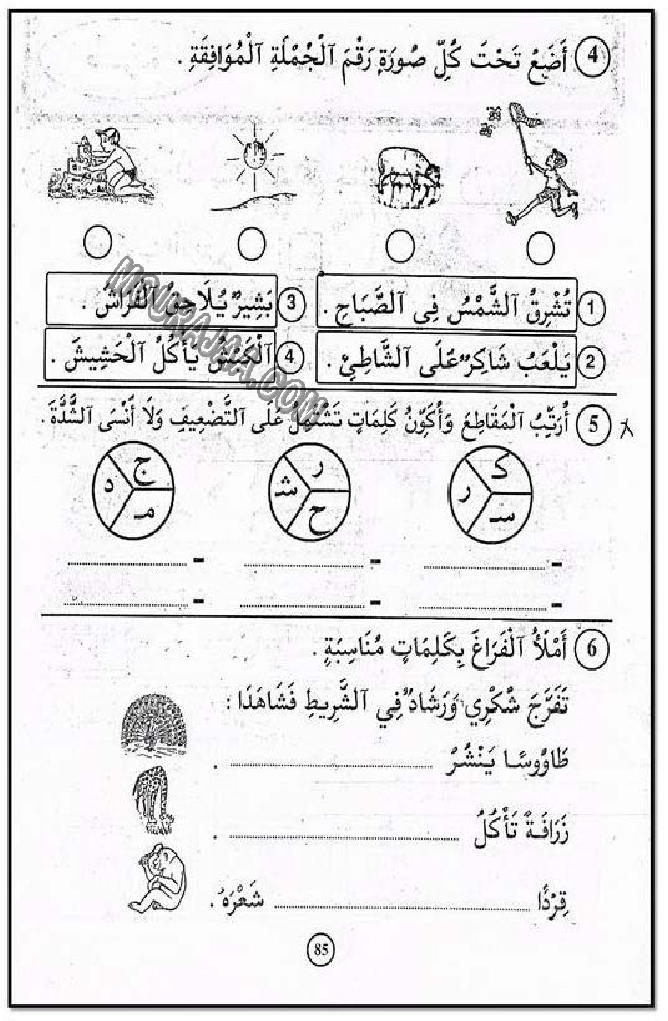 4 أَضَعُ تَحْتَ كُلِّ صُورَةٍ رَقْمَ ٱلْجُمْلَةِ ٱلْمُوَافِقَةِ .
1 تُشْرِقُ ٱلشَّمْسُ فِي ٱلصَّبَاحِ .
3 بَشِيرٌ يُلَاحِقُ ٱلْفَرَاشَ .
2 يَلْعَبُ شَاكِرٌ عَلَى ٱلشَّاطِئِ .
4 ٱلْكَبْشُ يَأْكُلُ ٱلْحَشِيشَ .
MOURAJAA.COM
5 أُرَتِّبُ ٱلْمَقَاطِعَ وَأُكَوِّنُ كَلِمَاتٍ تَشْتَمِلُ عَلَى ٱلتَّضْعِيفِ وَلَا أَنْسَى ٱلشَّدَّةَ .
كـ ر سـ
ر شـ ح
ج د مـ
6 أَمْلَأُ ٱلْفَرَاغَ بِكَلِمَاتٍ مُنَاسِبَةٍ .
تَفَرَّجَ شُكْرِي وَرَشَادٌ فِي ٱلشَّرِيطِ فَشَاهَدَا :
طَاوُوسًا يَنْشُرُ .................... .
زَرَافَةً تَأْكُلُ .................... .
قِرْدًا .................... شَعْرَهُ .
85